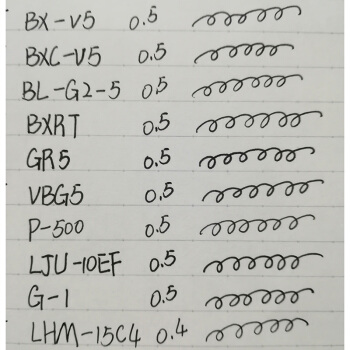 BX-V5 0.5
BXC-V5 0.5
BL-G2-5 0.5
BXRT 0.5
GR5 0.5
VBG5 0.5
P-500 0.5
LJU-10EF 0.5
G-1 0.5
LHM-15C4 0.4